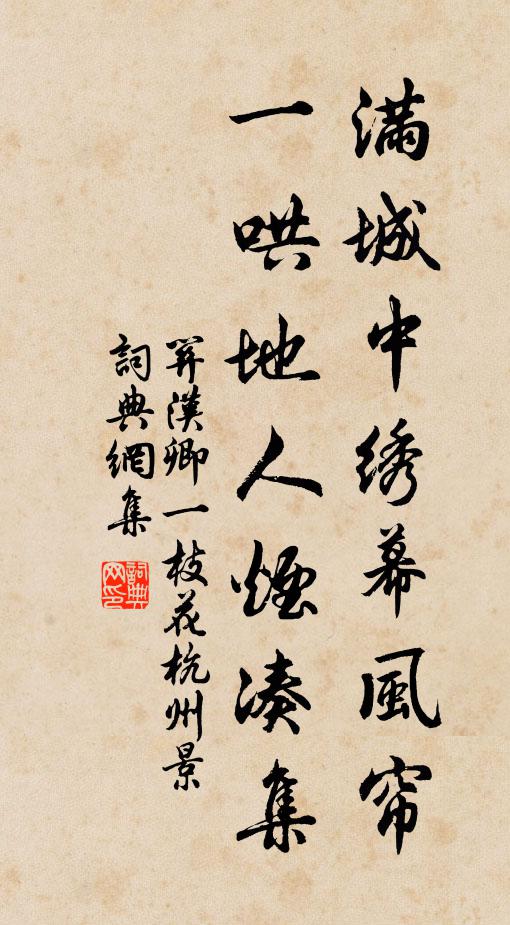 满城中绣幕風帘
一哄地人煙凑集
関漢卿一枝花杭州景
詞典網集
詞典
网印